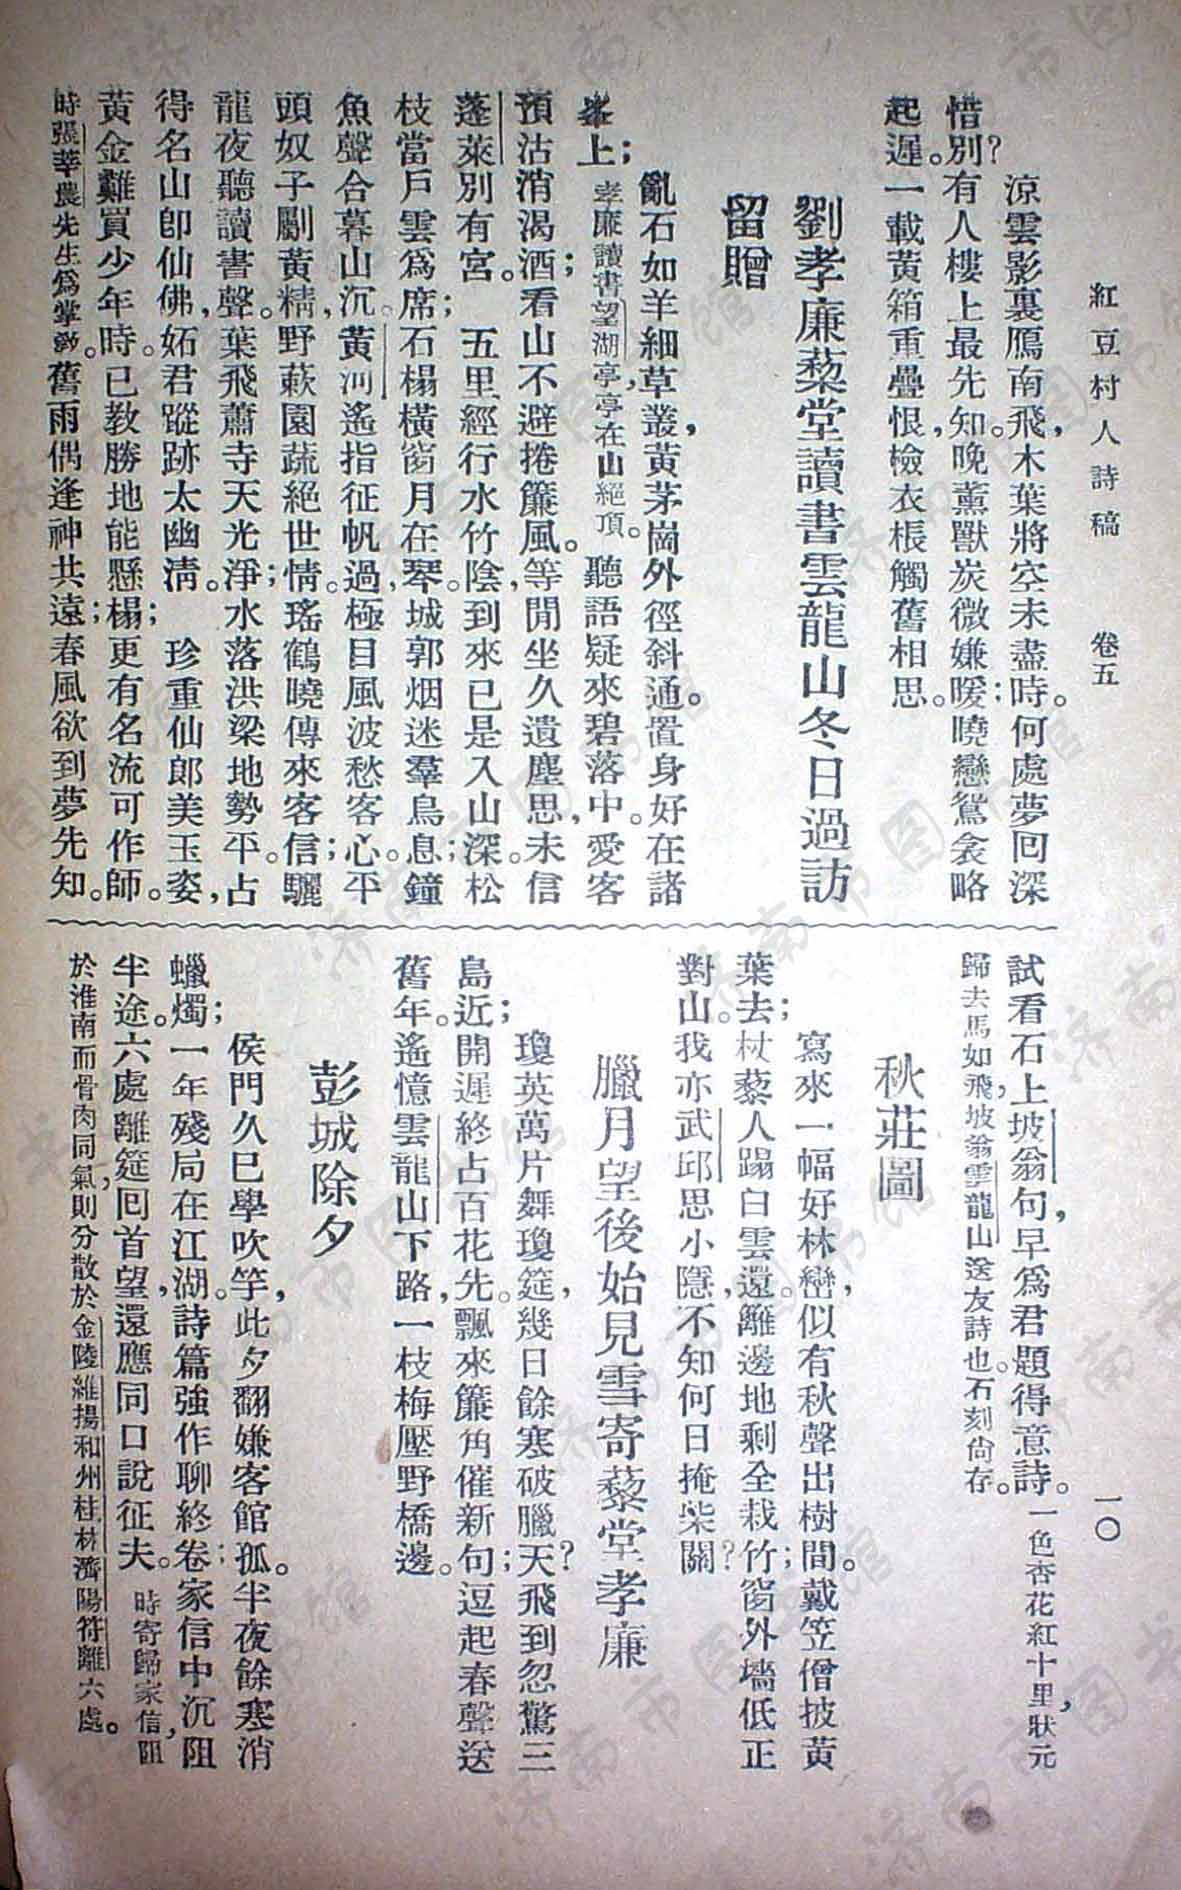 紅豆村人詩稿　卷五　一〇
涼雲影裏鴈南飛，木葉將空未盡時。何處夢回深
惜別？有人樓上最先知。晚薰獸炭微嫌暖；曉戀鴛衾略
起遲。一載黃箱重疊恨，檢衣棖觸舊相思。
劉孝廉藜堂讀書雲龍山冬日過訪
留贈
亂石如羊細草叢，黃茅崗外徑斜通。置身好在諸
峯上；孝廉讀書望湖亭，亭在山絕頂。聽語疑來碧落中。愛客
預沽消渴酒；看山不避捲簾風。等閒坐久遺塵思，未信
蓬萊別有宮。　五里經行水竹陰，到來已是入山深。松
枝當戶雲爲席；石榻橫窗月在琴。城郭烟迷羣鳥息；鐘
魚聲合暮山沉。黃河遙指征帆過，極目風波愁客心。平
頭奴子劚黃精，野蔌園蔬絕世情。瑤鶴曉傳來客信；驪
龍夜聽讀書聲。葉飛蕭寺天光淨；水落洪梁地勢平。占
得名山即仙佛，妬君蹤跡太幽淸。　珍重仙郎美玉姿，
黃金難買少年時。已教勝地能懸榻；更有名流可作師。
時張莘農先生爲掌教。舊雨偶逢神共遠；春風欲到夢先知。
試看石上坡翁句，早爲君題得意詩。一色杏花紅十里，狀元
歸去馬如飛，坡翁雲龍山送友詩也。石刻尙存。
秋莊圖
寫來一幅好林巒，似有秋聲出樹間。戴笠僧披黃
葉去；杖藜人踢白雲還。籬邊地剩全栽竹；窗外墻低正
對山。我亦武邱思小隱，不知何日掩柴關？
臘月望後始見雪寄藜堂孝廉
瓊英萬片舞瓊筵，幾日餘寒破臘天？飛到忽驚三
島近；開遲終占百花先。飄來簾角催新句；逗起春聲送
舊年。遙憶雲龍山下路，一枝梅壓野橋邊。
彭城除夕
侯門久已學吹竽，此夕翻嫌客館孤。半夜餘寒消
蠟燭；一年殘局在江湖。詩篇強作聊終卷；家信中沉阻
半途。六處離筵回首望，還應同口說征夫。時寄歸家信，阻
於淮南而骨肉同氣，則分散於金陵維揚和州桂林濟陽符離六處。